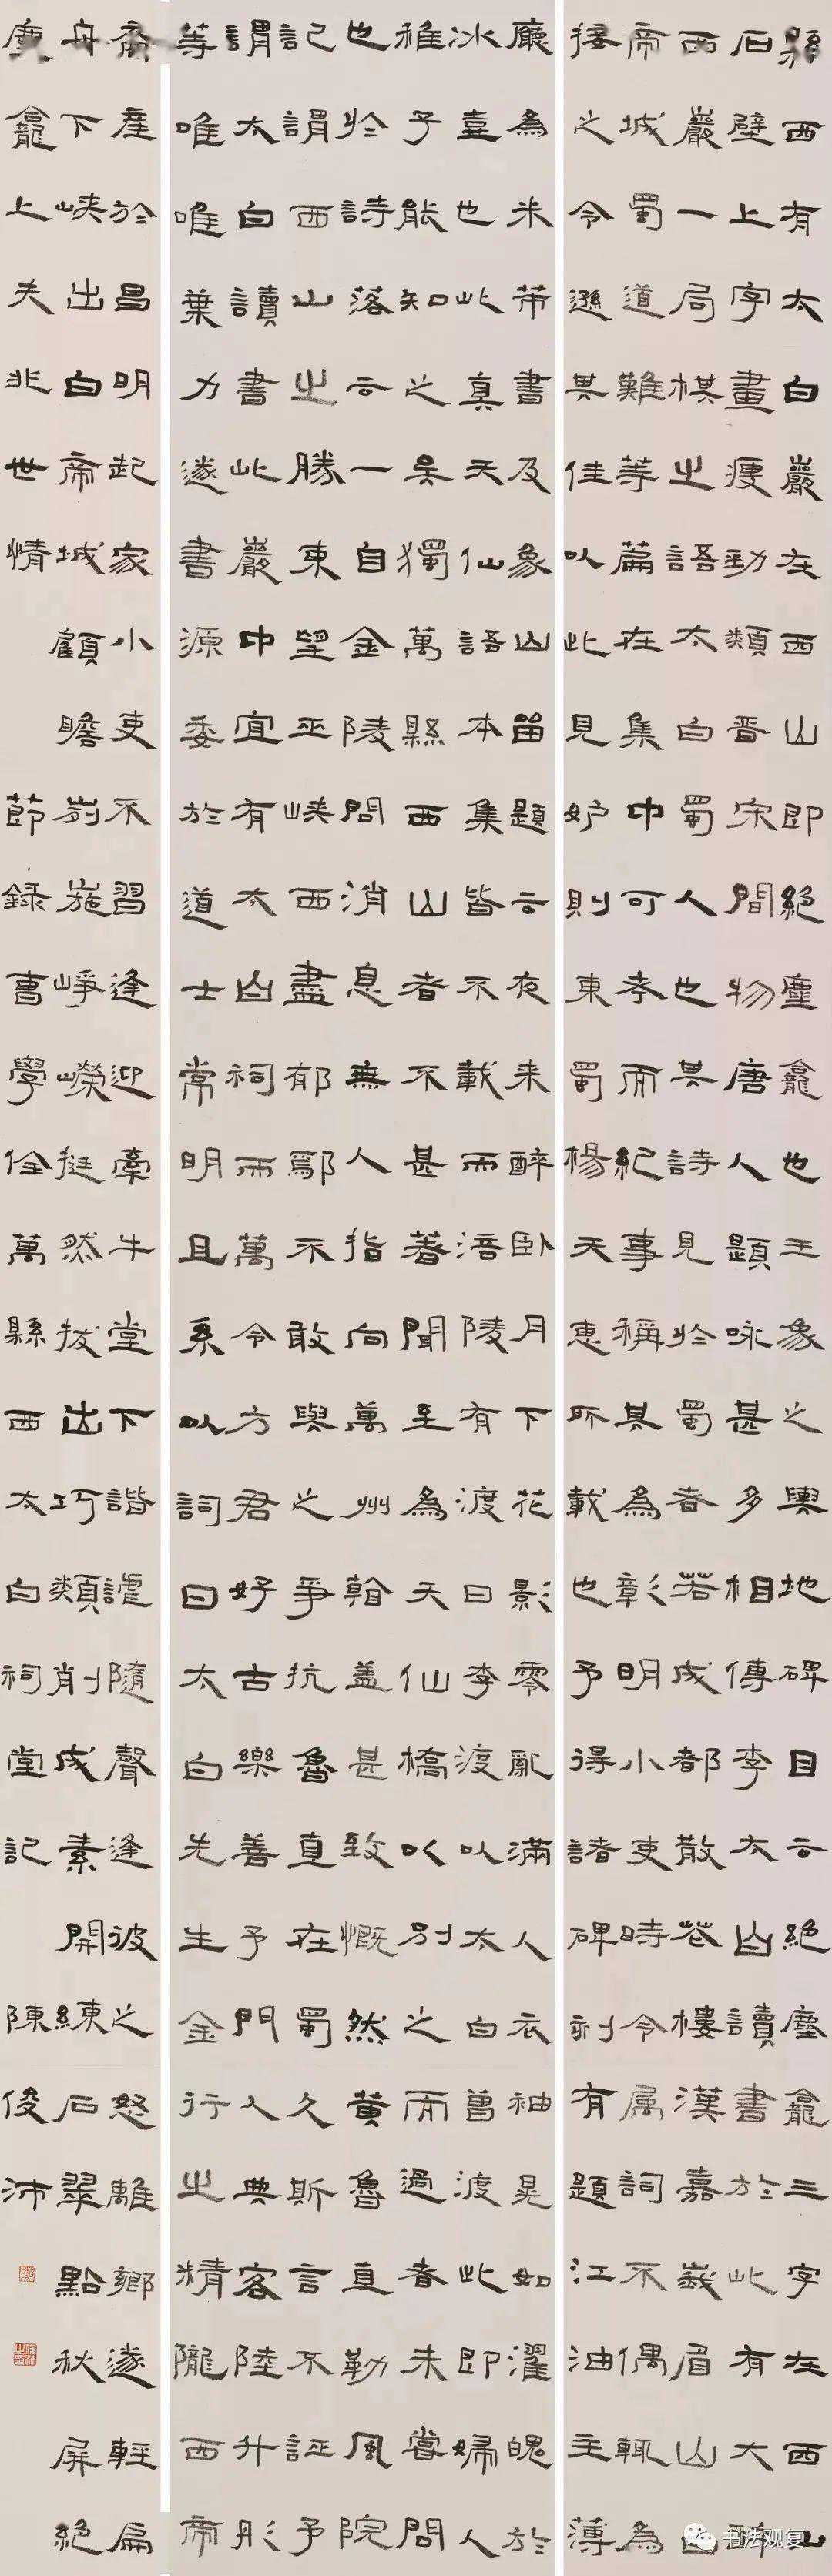 縣西有太白巖在西山即絕塵龕也王象之輿地碑目云絕塵龕三字在西山
石壁上字畫瘦勁類晉宋間物唐人題咏甚多相傳李太白讀書於此有大醉
西巖一局棋之語太白蜀人也其詩見於蜀者若成都散花樓漢嘉峩眉山白
帝城蜀道難等篇在集中可考而紀事稱其為彰明小吏時令属詞不偶輒為
接之令遜其佳以此見妒則東蜀楊天惠所載也予得諸碑刻有題江油主薄
廳為米芾書及象山留題云夜来醉卧月下花影零亂滿人衣袖晃如濯魄於
冰壺也此真天仙語本集皆不載而涪陵有渡曰李渡以太白曾渡此即婦人
稚子能知之吴獨萬縣西山者不甚著聞至為天仙橋以別之而過者未嘗問
也於詩落云一自金陵問消息無人指向萬州翰盖甚致慨然黃魯直勒風院
記謂西山之勝東望巫峽西盡郁鄢不敢與之爭抗魯直在蜀久斯言不誣予
謂太白讀書此巖中宜有太白祠而萬令方君好古樂善予門人典客陸升彤
等唯唯葉力遂書源委於道士常明且系以詞曰太白先生金行之精隴西帝
裔產於昌明起家小吏不習逢迎牽牛堂下諧謔隨聲逢彼之怒離鄉遂輕扁
舟下峽出白帝城顧瞻施崢嶸挺然拔出巧類削成素開練石翠點秋屏絕
塵龕上夫非世情 節録曹學佺萬縣西太白祠堂記 陳俊沛
书法观复